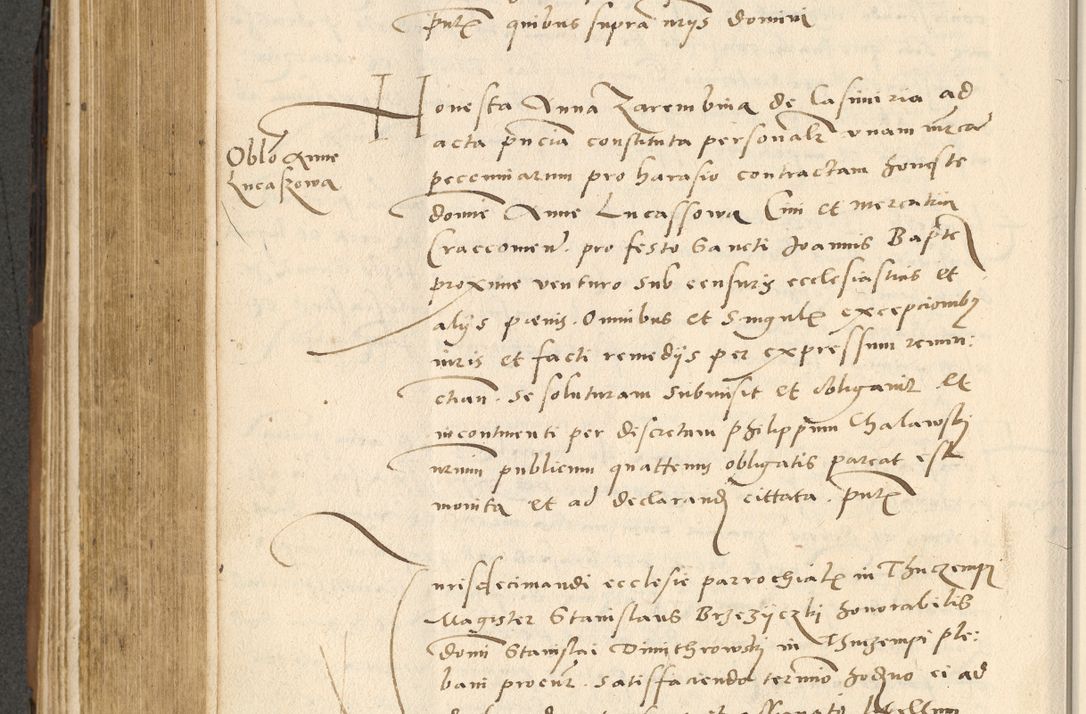 pntt quibus supra nrijs domini
Honesta Anna Zarembina de Casimiria ad
acta pncia constituta personalr unam mrca
Obloe Anne
Lucaszowa
pecuniarum pro harasio contractam honeste
domie Anne Lucassowa Civi et mercatrici
Craccovien. pro festo Sancti Joannis Bapte
proxime venturo sub censuris ecclesiasticis et
alijs poenis. Omnibus et singulr excepcionibus
iuris et facti remedijs per expressum renun:
ctian. se soluturam submisit et obligavit et
incontinenti per discretum philippum Chalawski
nrium publicum quattenus obligatis pareat est
monita et ad declarand cittata. pntt
Juris decimandi ecclesie parrochialr in Thuczempi
Magister Stanislaus Brzezyczki honorabilis
domi Stanislai Dmithrowski in Thuczempi ple:
bani procur. satisfaciendo termio hodno ei ad
libellum